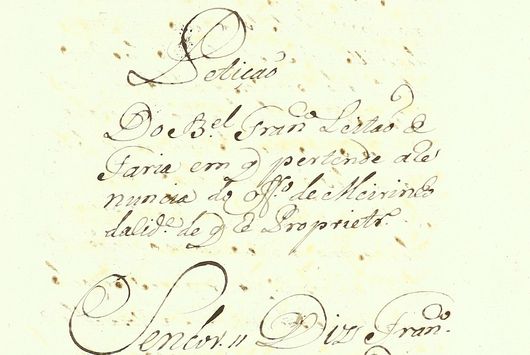 Petição
Do B.el Fran.co Leitaõ de
Faria em q pertende a Re
nuncia do off.o de Meirinho
da Cid.e de q é Propriet.r
Senhor. Diz Fran.co